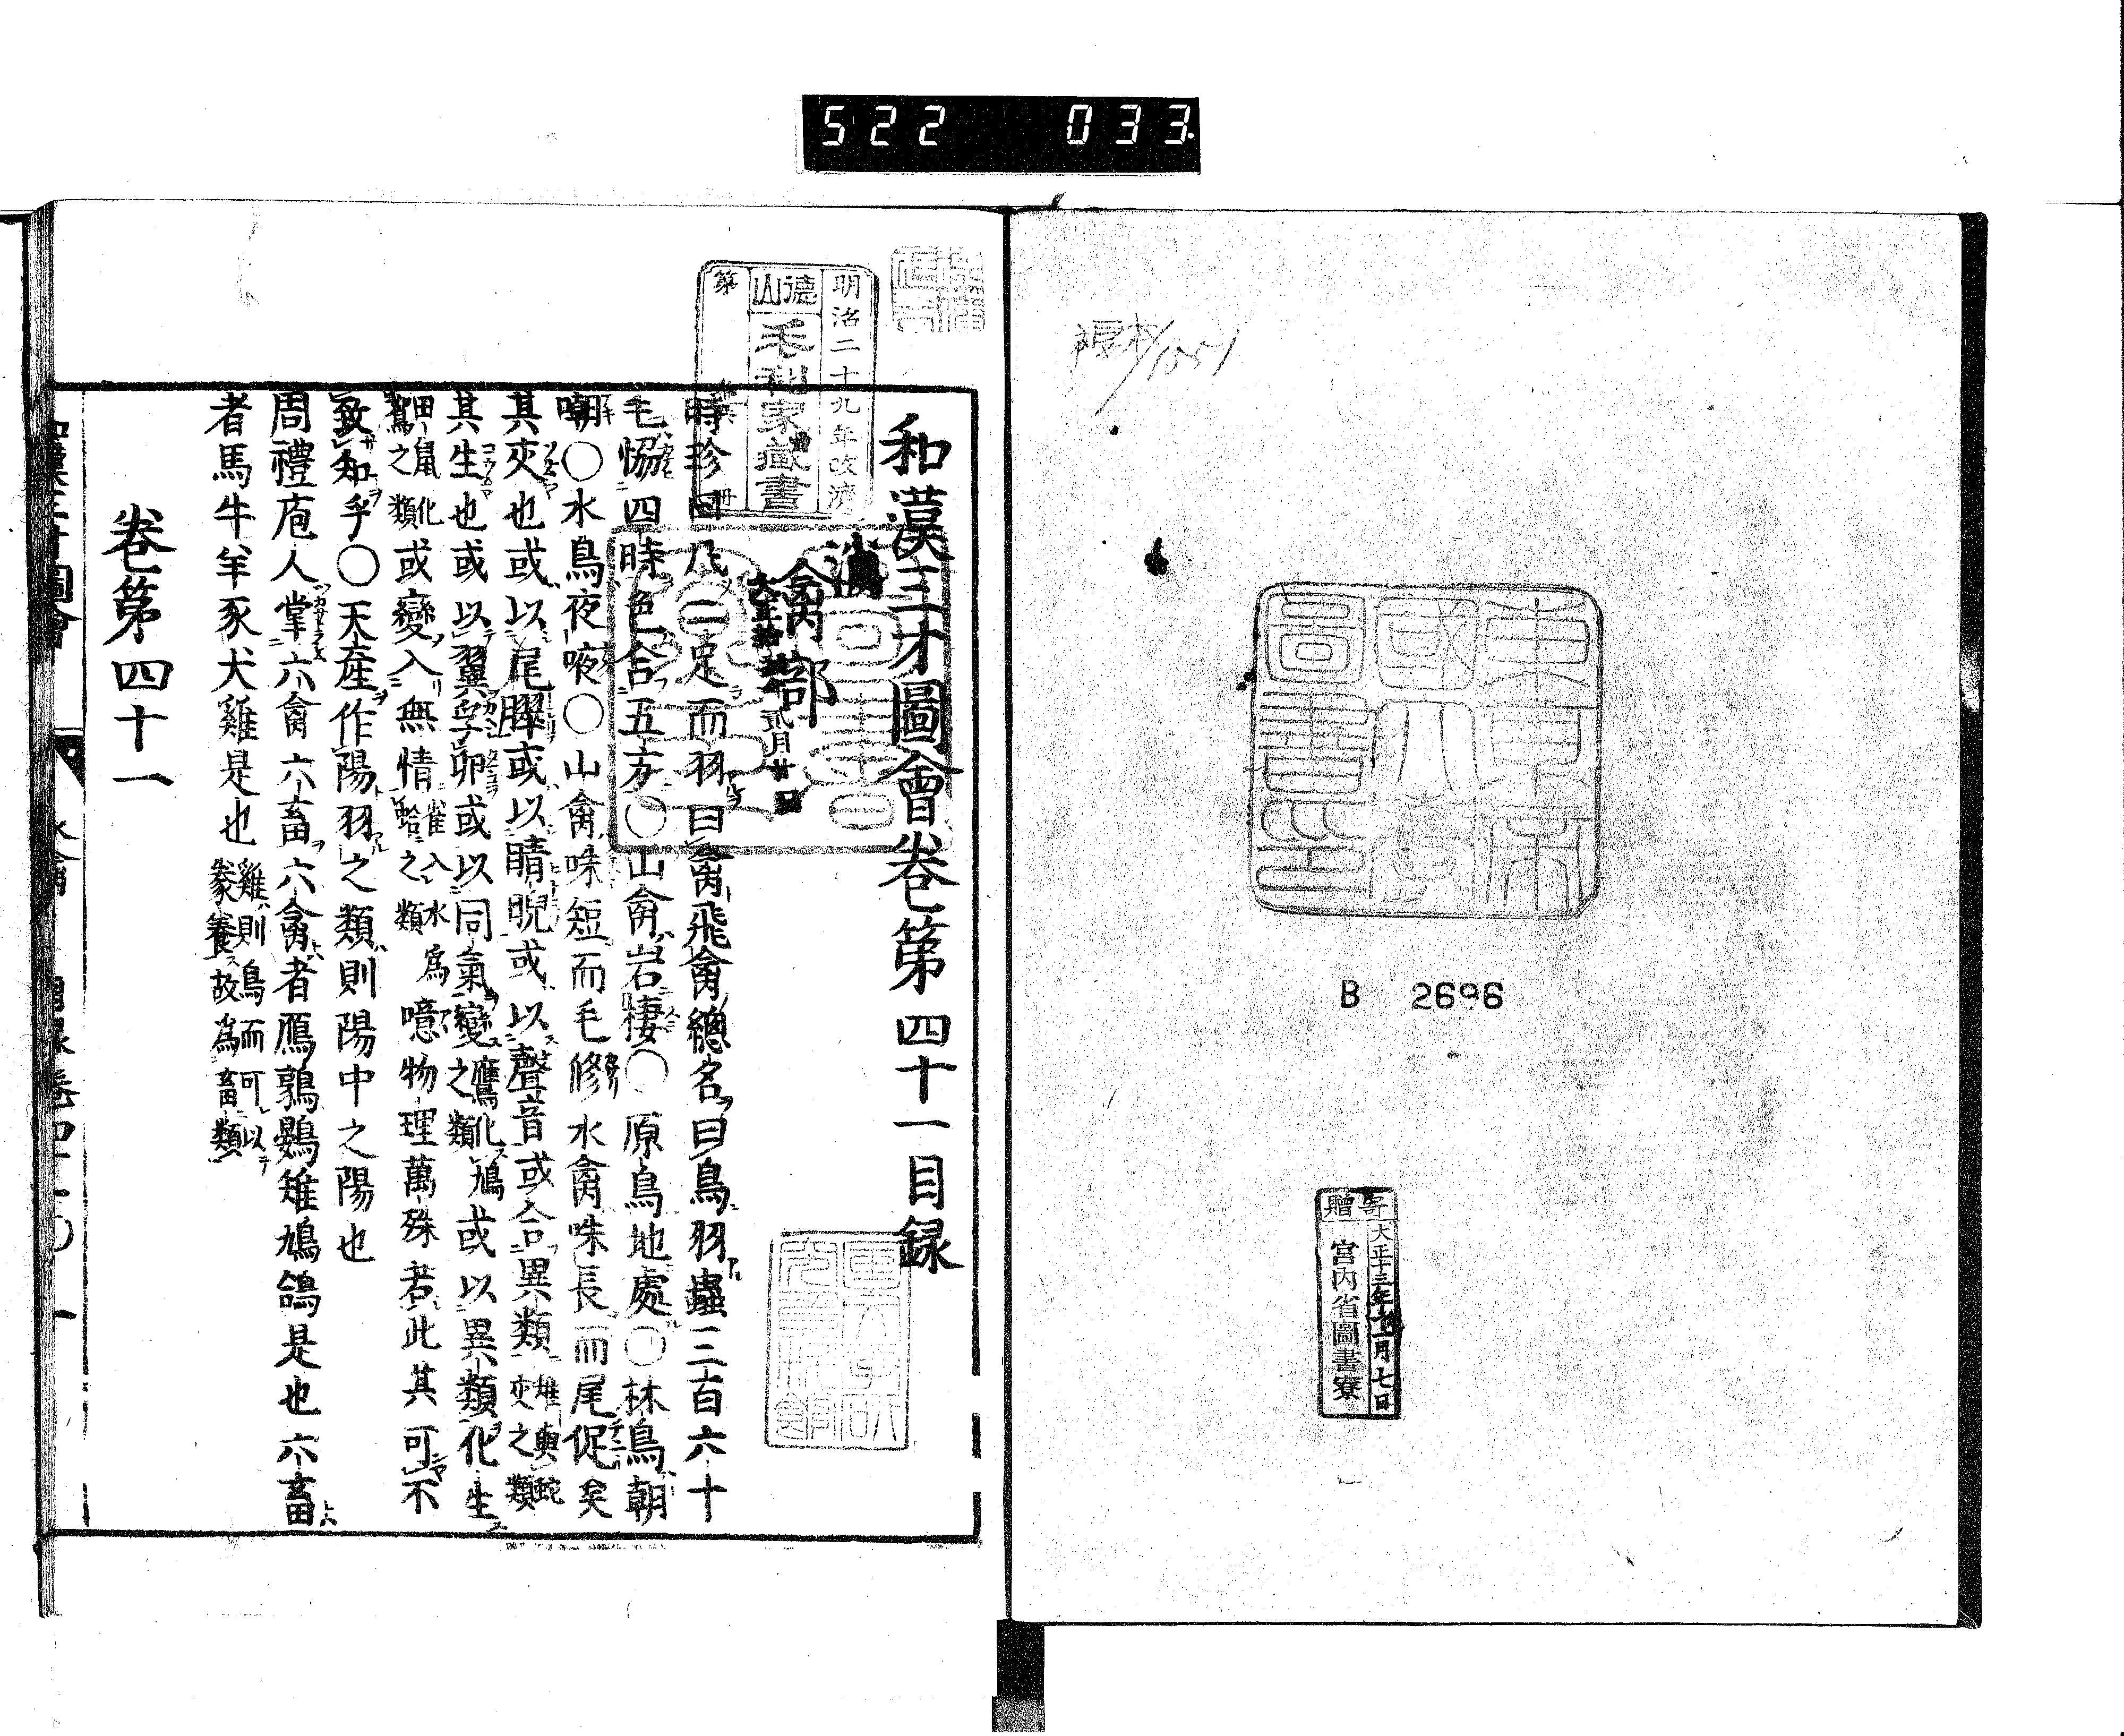 522 033
B 2696
寄贈
大正十三年十一月七日
宮内省圖書寮
東京
帝國大學
圖書印
明治二十九年改濟
德山
毛利家藏書
第
冊
和漢三才圖會卷第四十一目録
禽部
時珍曰凡二足而羽曰禽飛禽總名曰鳥羽蟲三百六十
毛恊四時色合五方〇山禽岩棲〇原鳥地處〇林鳥朝
嘲〇水鳥夜㖡〇山禽咮短而毛修水禽咮長而尾促矣
其交也或以尾臎或以睛睨或以聲音或合異類雉與蛇交之類
其生也或以翼孚卵或以同氣變鷹化鳩之類或以異類化生
田鼠化鴽之類或變入無情雀入水爲蛤之類噫物理萬殊若此其可不
致知乎〇天産作陽羽之類則陽中之陽也
周禮庖人掌六禽六畜六禽者鴈鶉鷃雉鳩鴿是也六畜
者馬牛羊豕犬雞是也雞則鳥而可以豢養故爲畜類
卷第四十一